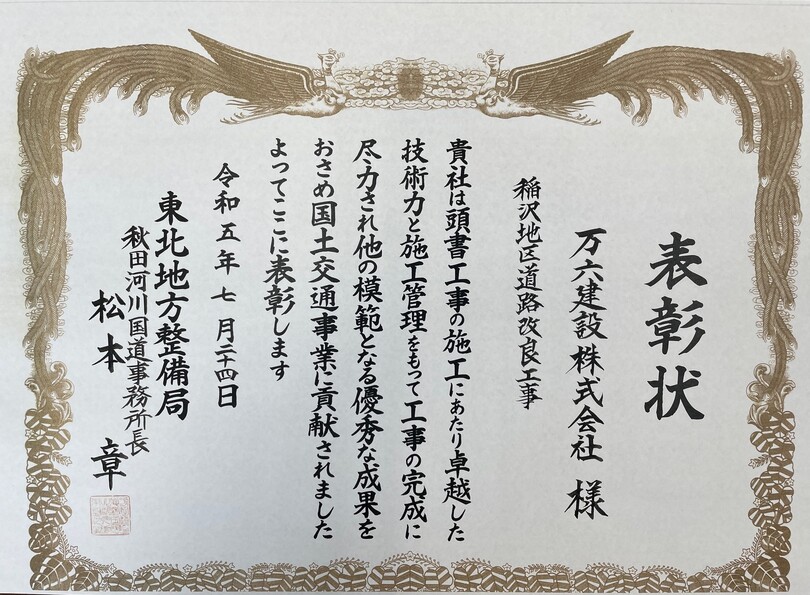 表彰状
万六建設株式会社 様
稲沢地区道路改良工事
貴社は頭書工事の施工にあたり卓越した
技術力と施工管理をもって工事の完成に
尽力され他の模範となる優秀な成果を
おさめ国土交通事業に貢献されました
よってここに表彰します
令和五年七月二十四日
東北地方整備局
秋田河川国道事務所長
松本 章